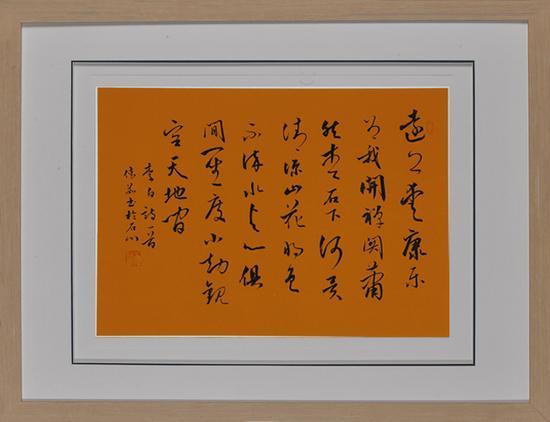 遠公愛康乐
为我開禪関蕭
然松石下何異
清凉山花将色
不染水与心俱
閒一坐度小劫観
空天地間
李白詩一首
书於石